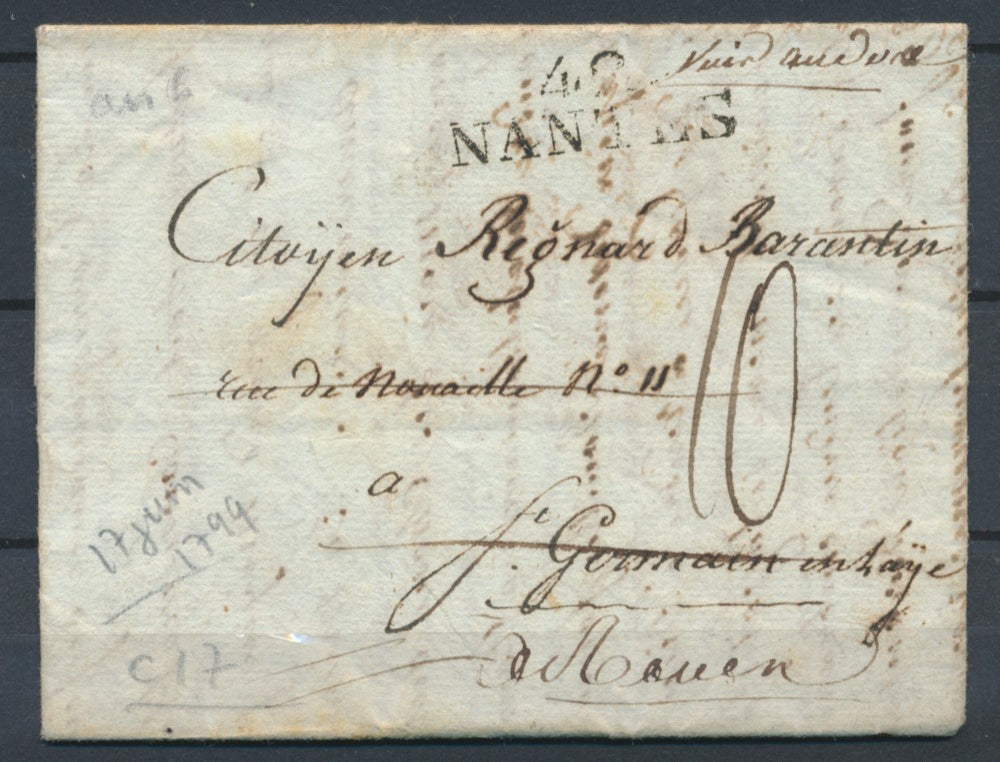 an 6
Voir au dos
42
NANTES
Citoÿen Regnard Barantin
10
rue de Nouaille N° 11
a
St. Germain en Laÿe
a Rouen
17 juin
1799
C 17